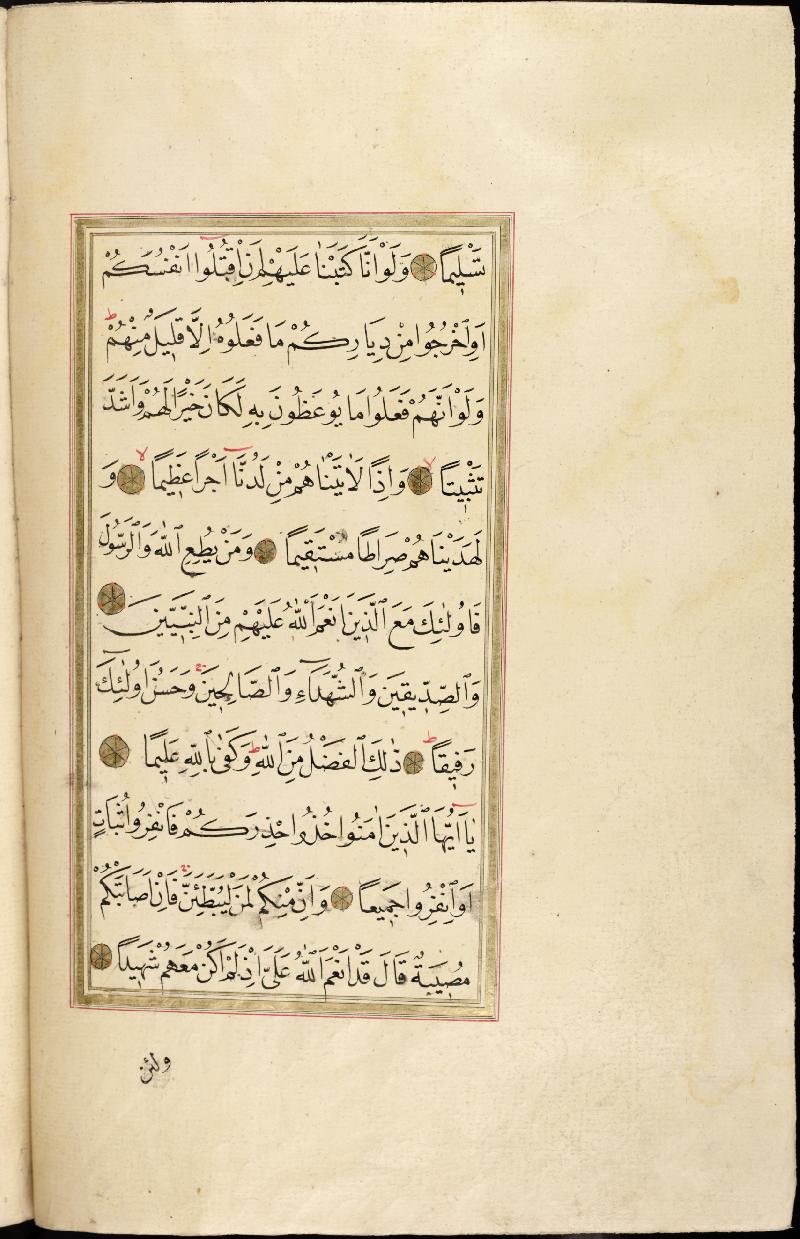 تَسْلِيمًا وَلَوْ اَنَّا كَتَبْنَا عَلَيْهِمْ اَنِ اقْتُلُوا اَنْفُسَكُمْ
اَوِ اخْرُجُوا مِنْ دِيَارِكُمْ مَا فَعَلُوهُ اِلَّا قَلِيلٌ مِنْهُمْ ط
وَلَوْ اَنَّهُمْ فَعَلُوا مَا يُوعَظُونَ بِهِ لَكَانَ خَيْرًا لَهُمْ وَاَشَدَّ
تَثْبِيتًا لا وَاِذًا لَاٰتَيْنَاهُمْ مِنْ لَدُنَّا اَجْرًا عَظِيمًا لا وَ
لَهَدَيْنَاهُمْ صِرَاطًا مُسْتَقِيمًا وَمَنْ يُطِعِ اللّٰهَ وَالرَّسُولَ
فَاُولٰئِكَ مَعَ الَّذِينَ اَنْعَمَ اللّٰهُ عَلَيْهِمْ مِنَ النَّبِيِّينَ
وَالصِّدِّيقِينَ وَالشُّهَدَاءِ وَالصَّالِحِينَ وَحَسُنَ اُولٰئِكَ
رَفِيقًا ط ذٰلِكَ الْفَضْلُ مِنَ اللّٰهِ ط وَكَفٰى بِاللّٰهِ عَلِيمًا
يَا اَيُّهَا الَّذِينَ اٰمَنُوا خُذُوا حِذْرَكُمْ فَانْفِرُوا ثُبَاتٍ
اَوِ انْفِرُوا جَمِيعًا وَاِنَّ مِنْكُمْ لَمَنْ لَيُبَطِّئَنَّ فَاِنْ اَصَابَتْكُمْ
مُصِيبَةٌ قَالَ قَدْ اَنْعَمَ اللّٰهُ عَلَيَّ اِذْ لَمْ اَكُنْ مَعَهُمْ شَهِيدًا
ولئن